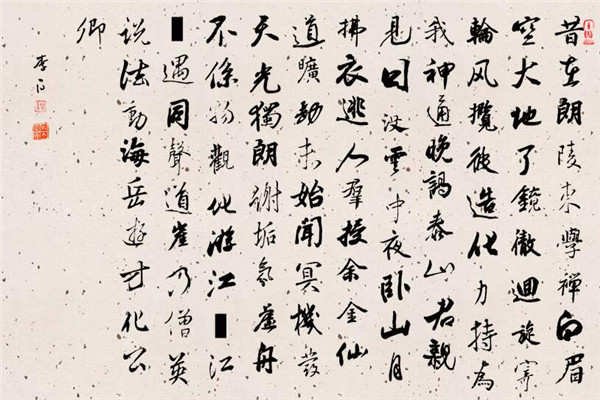 昔在朗陵東學禪白眉
空大地了鏡徹迴旋寄
輪风攬彼造化力持為
我神通晚謁泰山君親
見日沒雲中夜卧山月
拂衣逃人羣授余金仙
道曠劫未始聞冥機發
天光獨朗謝垢氛虛舟
不係物觀化游江江
遇同聲道崖乃僧英
説法動海岳遊方化公
卿
李白